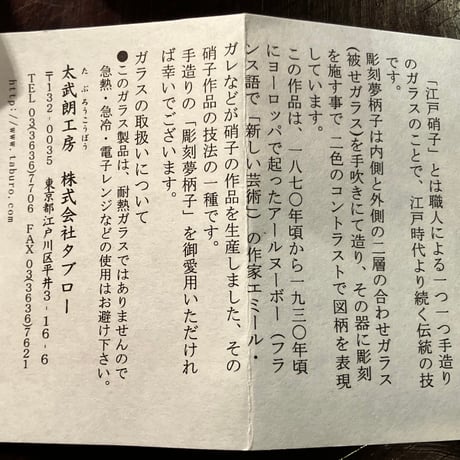 「江戸硝子」とは職人による一つ一つ手造り
のガラスのことで、江戸時代より続く伝統の技
です。
彫刻夢柄子は内側と外側の二層の合わせガラス
(被せガラス)を手吹きにて造り、その器に彫刻
を施す事で 二色のコントラストで図柄を表現
しています。
この作品は、一八七〇年頃から一九三〇年頃
にヨーロッパで起ったアールヌーボー(フラ
ンス語で「新しい芸術」)の作家エミール・
ガレなどが硝子の作品を生産しました、その
硝子作品の技法の一種です。
手造りの「彫刻夢柄子」を御愛用いただけれ
ば幸いでございます。
ガラスの取扱いについて
●このガラス製品は、耐熱ガラスではありませんので
急熱・急冷・電子レンジなどの使用はお避け下さい。
たぶろうこうぼう
太武朗工房 株式会社タブロー
〒132-0035 東京都江戸川区平井3-16-6
TEL 03(3636)7706 FAX 03(3636)7621
http://www.taburo.com